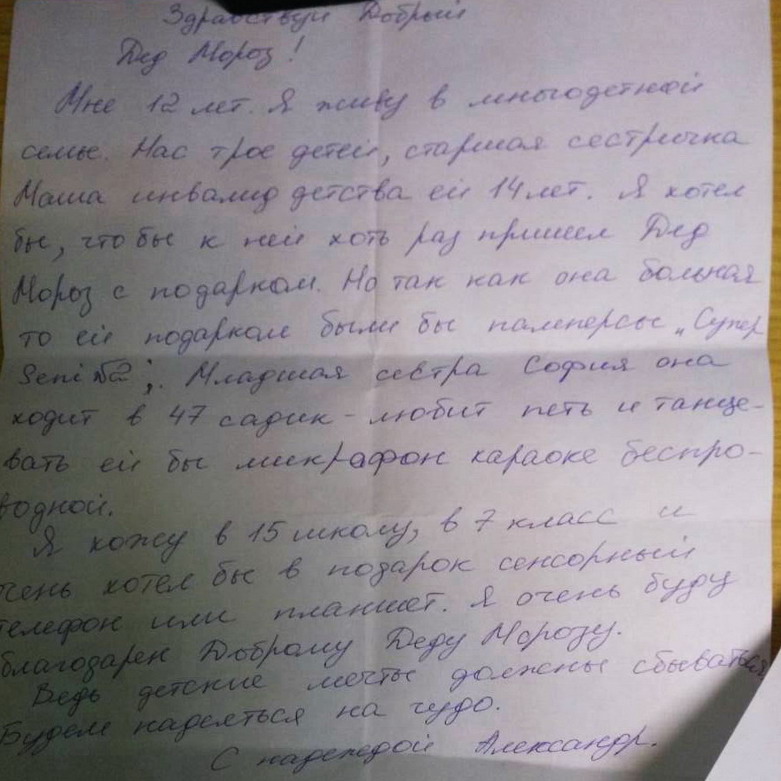 Здравствуй Добрый
Дед Мороз!
Мне 12 лет. Я живу в многодетной
семье. Нас трое детей, старшая сестричка
Маша инвалид детства ей 14 лет. Я хотел
бы, что бы к ней хоть раз пришел Дед
Мороз с подарком. Но так как она больная
то ей подарком были бы памперсы „Супер
Seni №2”; Младшая сестра София она
ходит в 47 садик - любит петь и танце-
вать ей бы микрафон караоке беспро-
водной.
Я хожу в 15 школу, в 7 класс и
очень хотел бы в подарок сенсорный
телефон или планшет. Я очень буду
благодарен Доброму Деду Морозу.
Ведь детские мечты должны сбываться
Будем надеяться на чудо.
С надеждой Александр.